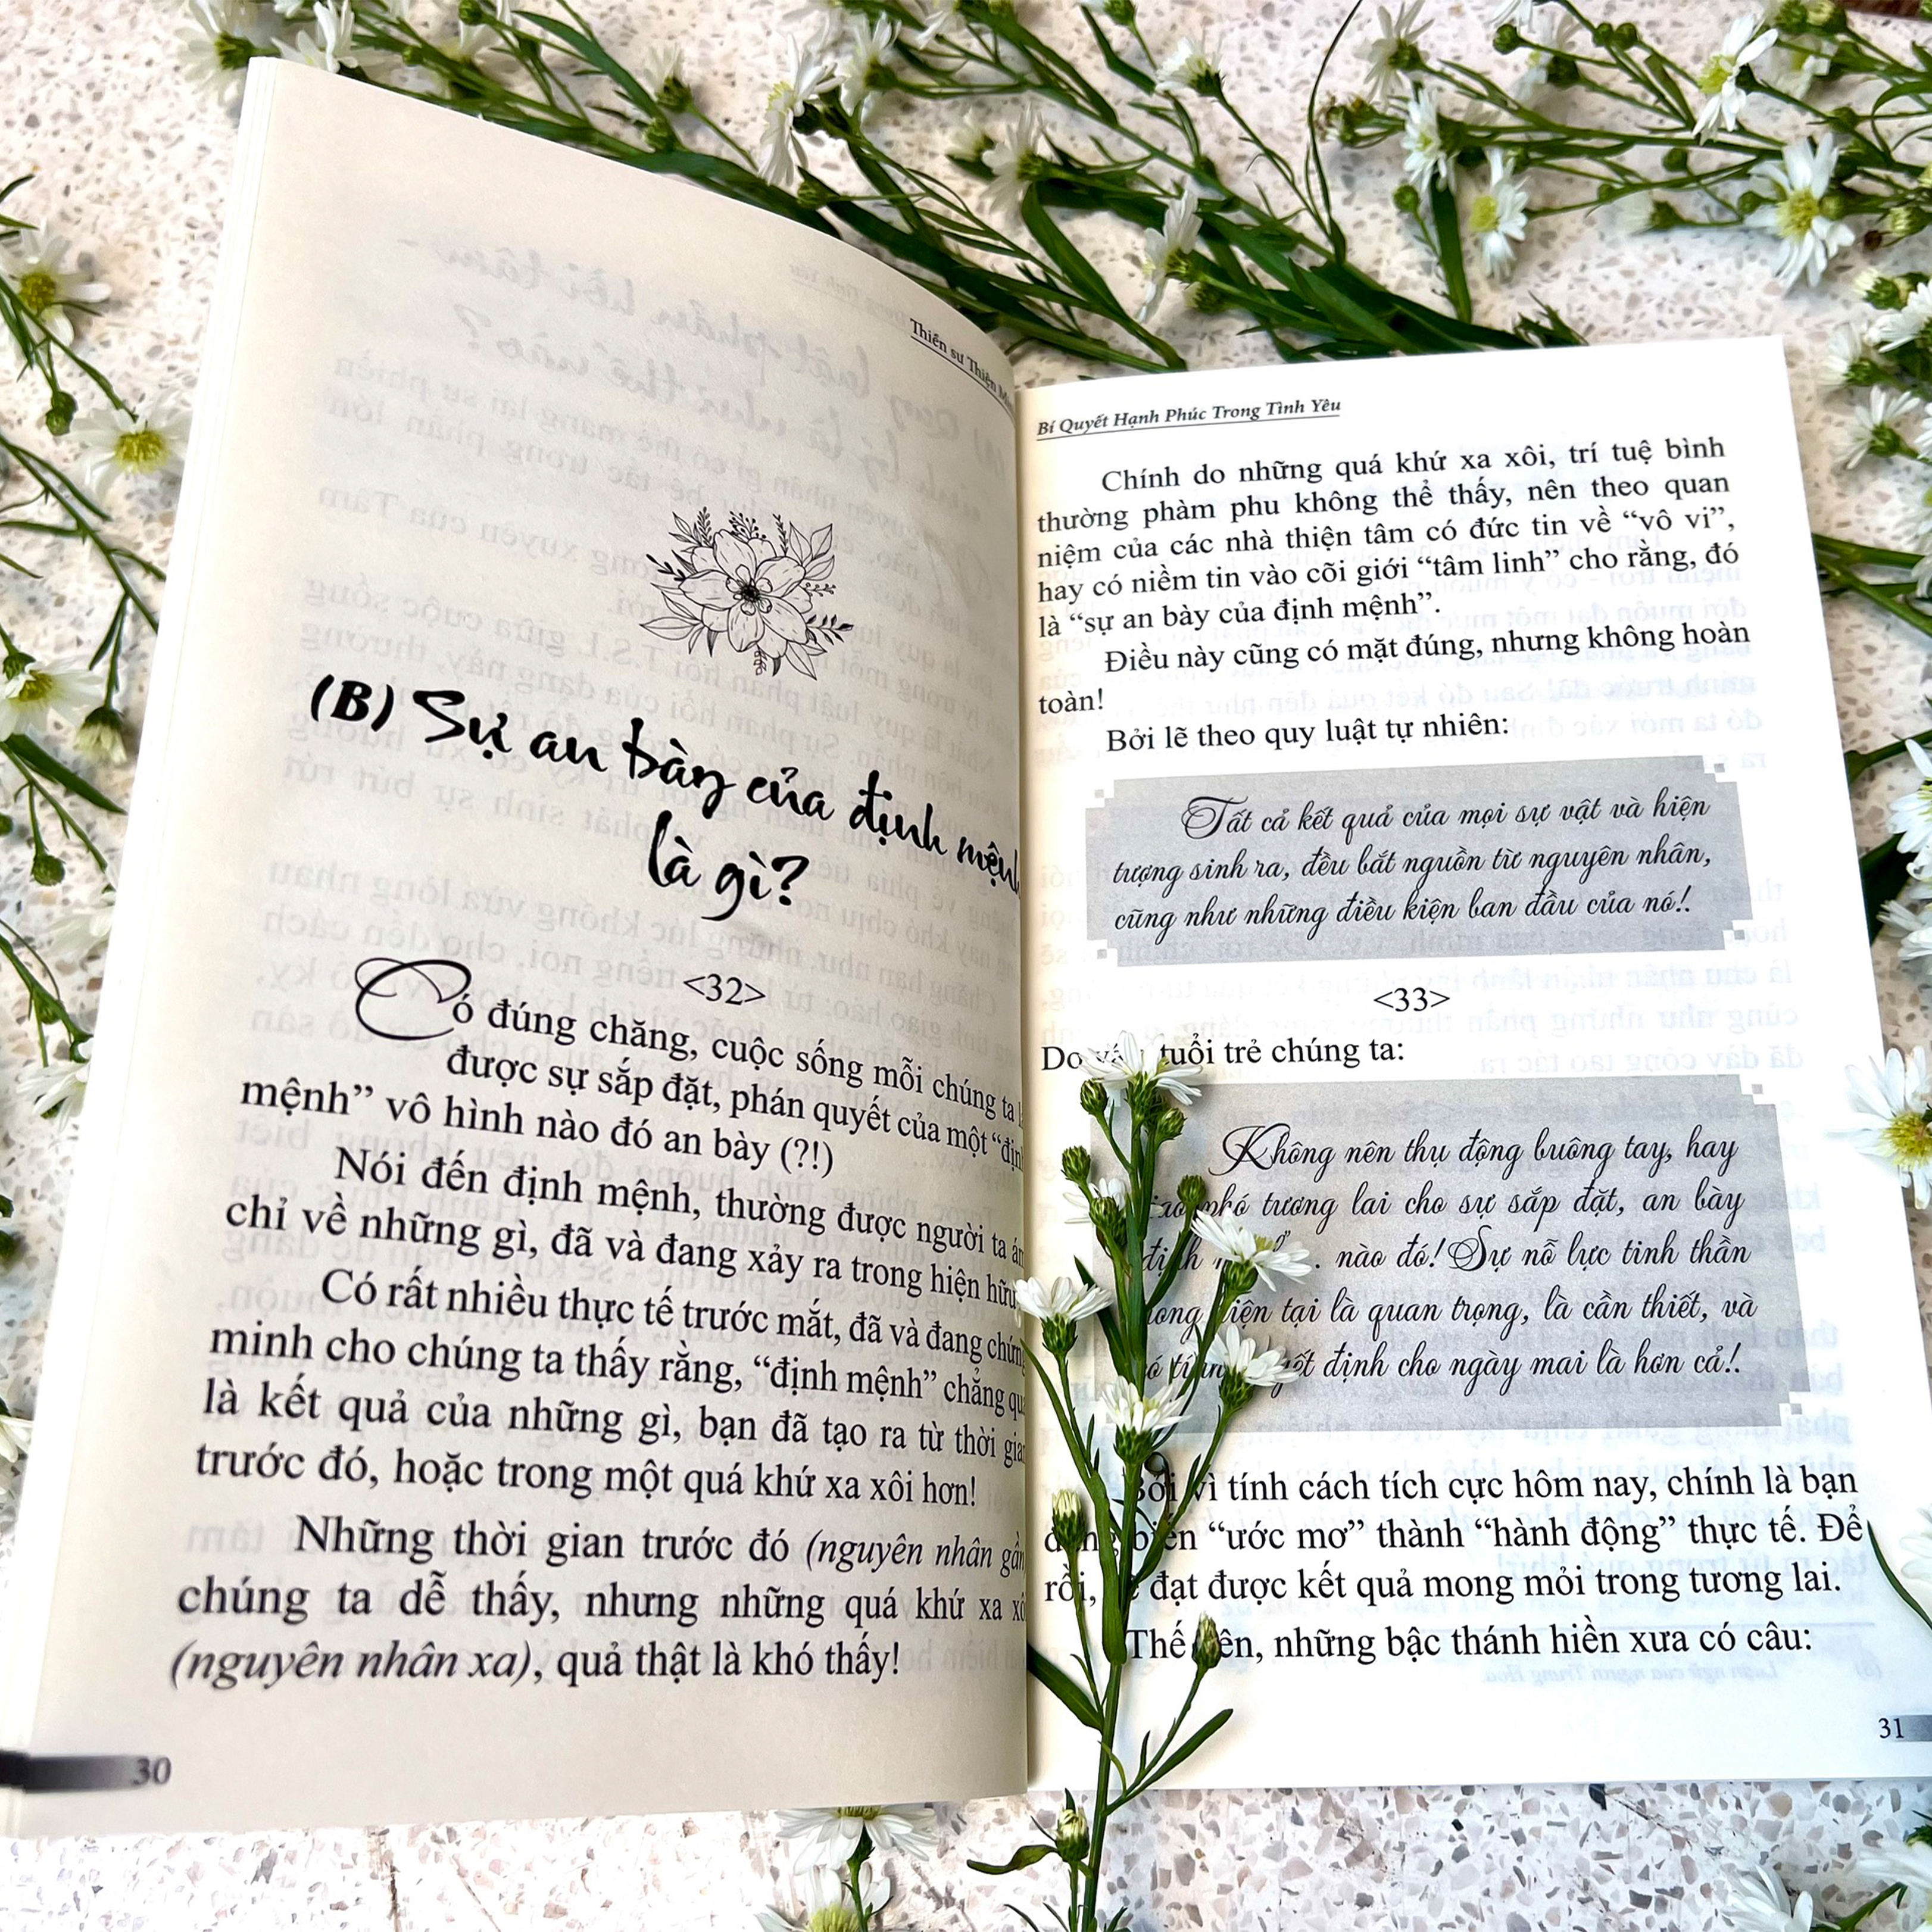 Thiền sư Thiện
(B) Sự an bày của định mệnh
là gì?
<32>
Có đúng chăng, cuộc sống mỗi chúng ta
được sự sắp đặt, phán quyết của một “định
mệnh” vô hình nào đó an bày (?!)
Nói đến định mệnh, thường được người ta
chỉ về những gì, đã và đang xảy ra trong hiện hữu
Có rất nhiều thực tế trước mắt, đã và đang chứng
minh cho chúng ta thấy rằng, “định mệnh” chẳng qua
là kết quả của những gì, bạn đã tạo ra từ thời gian
trước đó, hoặc trong một quá khứ xa xôi hơn!
Những thời gian trước đó (nguyên nhân gần
chúng ta dễ thấy, nhưng những quá khứ xa xôi
(nguyên nhân xa), quả thật là khó thấy!
30
Bí Quyết Hạnh Phúc Trong Tình Yêu
Chính do những quá khứ xa xôi, trí tuệ bình
thường phàm phu không thể thấy, nên theo quan
niệm của các nhà thiện tâm có đức tin về “vô vi”,
hay có niềm tin vào cõi giới “tâm linh” cho rằng, đó
là “sự an bày của định mệnh”.
Điều này cũng có mặt đúng, nhưng không hoàn
toàn!
Bởi lẽ theo quy luật tự nhiên:
Tất cả kết quả của mọi sự vật và hiện
tượng sinh ra, đều bắt nguồn từ nguyên nhân,
cũng như những điều kiện ban đầu của nó!.
<33>
Do vậy, tuổi trẻ chúng ta:
Không nên thụ động buông tay, hay
phó tương lai cho sự sắp đặt, an bày
định nào đó! Sự nỗ lực tinh thần
trong hiện tại là quan trọng, là cần thiết, và
có tính quyết định cho ngày mai là hơn cả!.
Bởi vì tính cách tích cực hôm nay, chính là bạn
đang biến “ước mơ” thành “hành động” thực tế. Để
rồi, sẽ đạt được kết quả mong mỏi trong tương lai.
Thế nên, những bậc thánh hiền xưa có câu:
31